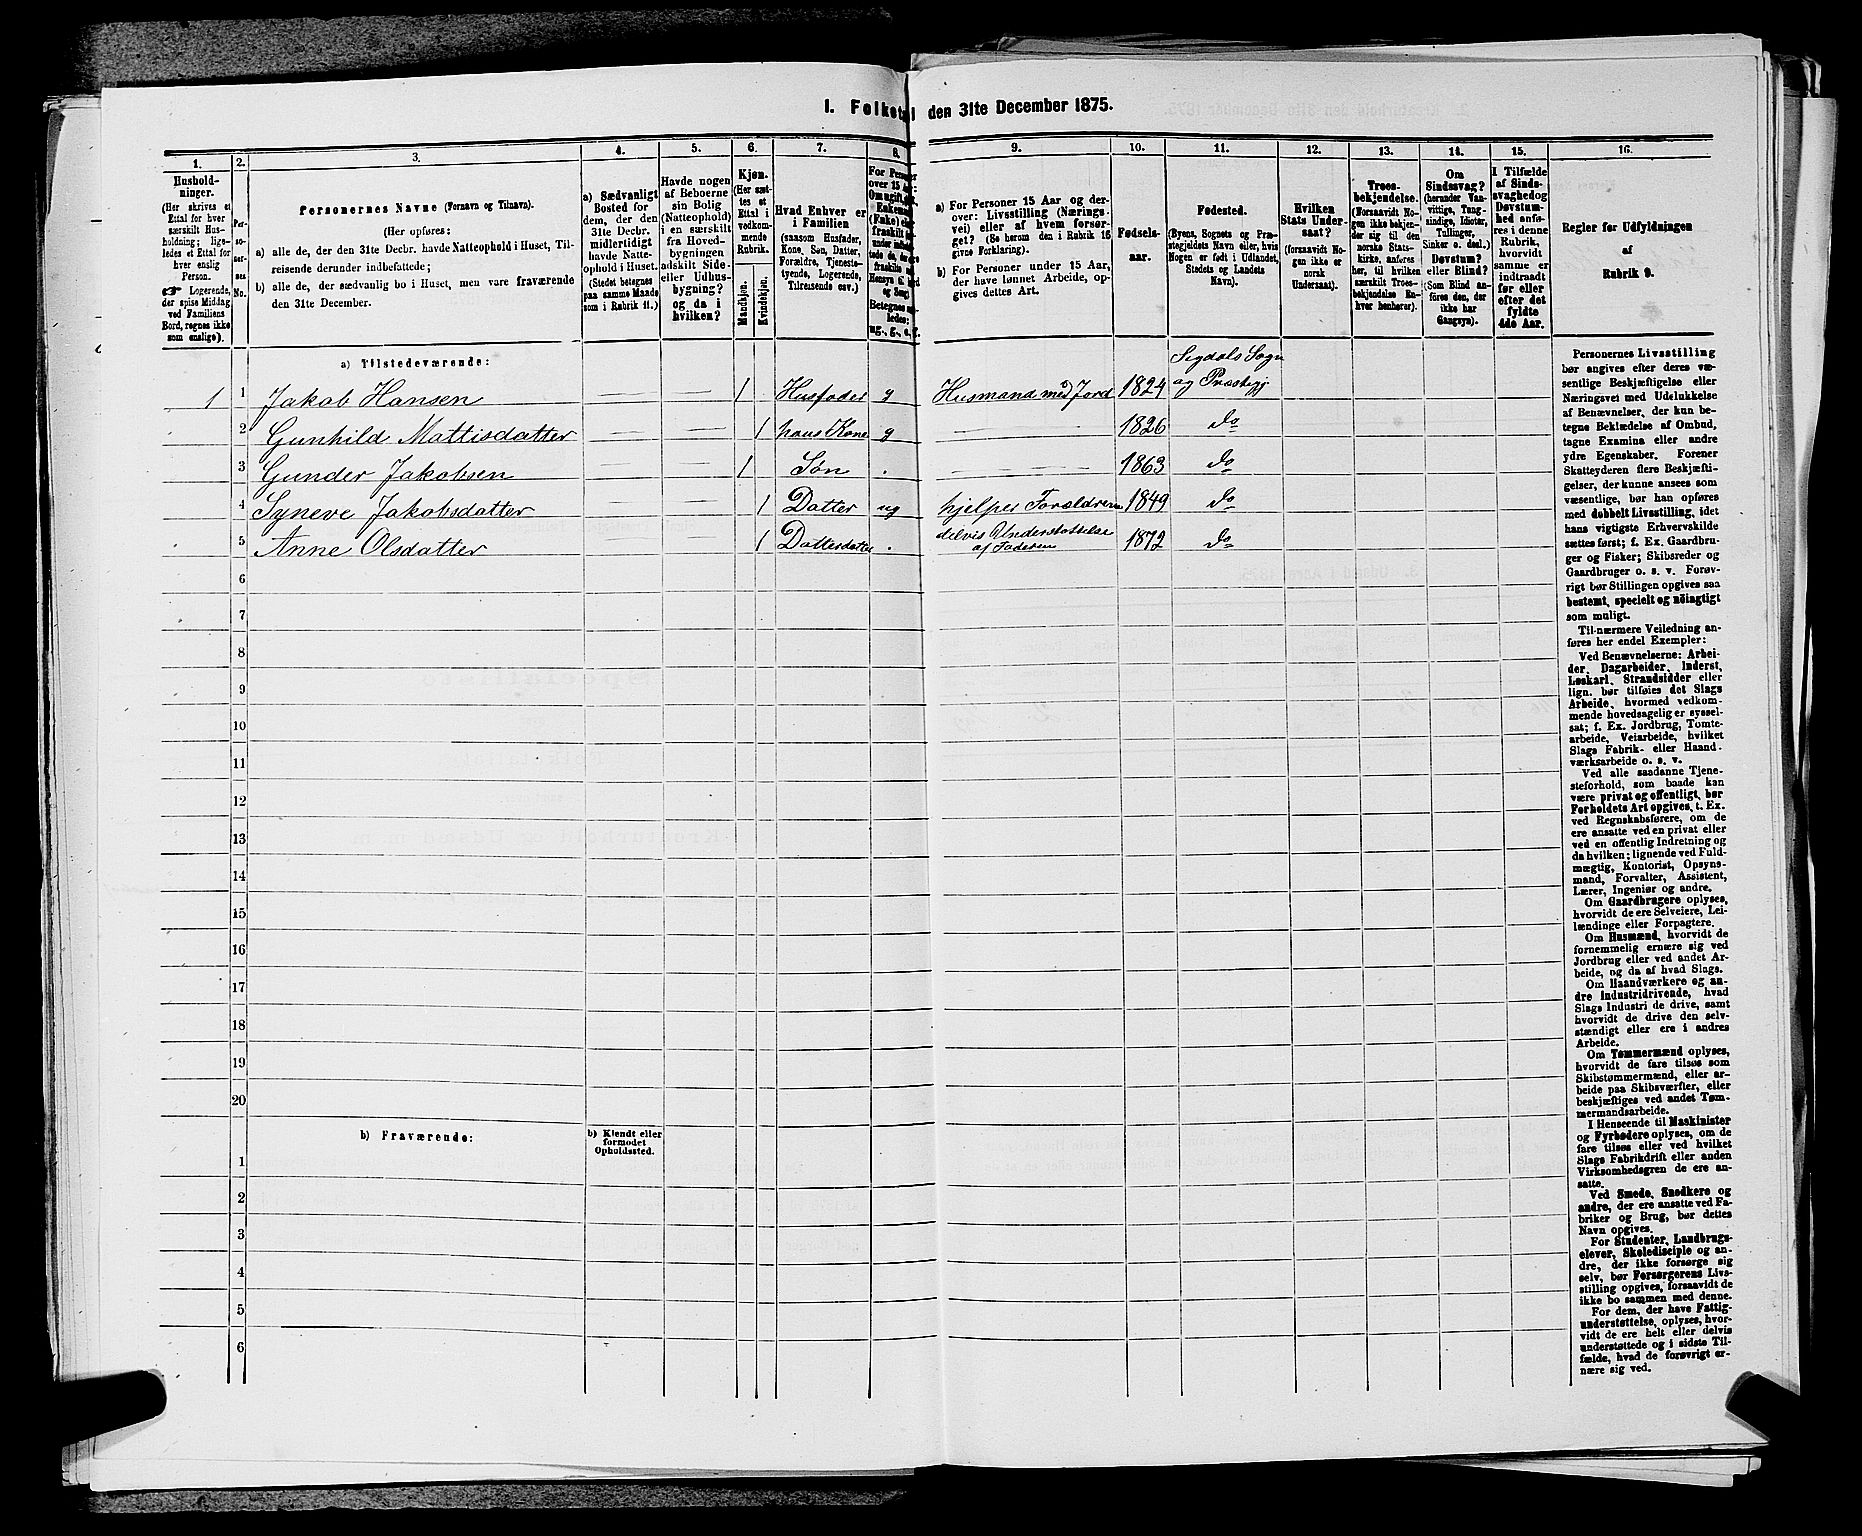 1. Folketal den 31te December 1875.
1.
Hushold-
ninger.
(Her skrives et
Ettal for hver
særskilt Hus-
holdning; lige-
ledes et Ettal for
hver enslig
Person.
☛ Logerende,
der spise Middag
ved Familiens
Bord, regnes ikke
som enslige).
2.
Per-
so-
ner-
nes
No.
3.
Personernes Navne (Fornavn og Tilnavn).
(Her opføres:
a) alle de, der den 31te Decbr. havde Natteophold i Huset, Til-
reisende derunder indbefattede;
b) alle de, der sædvanlig bo i Huset, men vare fraværende
den 31te December.
4.
a) Sædvanligt
Bosted for
dem, der den
31te Decbr.
midlertidigt
havde Natte-
ophold i Huset.
(Stedet betegnes
paa samme Maade
som i Rubrik 11.)
5.
Havde nogen
af Beboerne
sin Bolig
(Natteophold)
i en særskilt
fra Hoved-
bygningen
adskilt Side-
eller Udhus-
bygning?
og da i
hvilken?
6.
Kjøn.
(Her sæt-
tes et
Ettal i
vedkom-
mende
Rubrik.
Mandkjøn.
Kvindekjøn.
7.
Hvad Enhver er
i Familien
(saasom Husfader,
Kone, Søn, Datter,
Forældre, Tjeneste-
tyende, Logerende,
Tilreisende osv.)
8.
For Personer
over 15 Aar:
Betegnes saa-
ledes:
ug., g., e., f.
9.
a) For Personer 15 Aar og der-
over: Livsstilling (Nærings-
vei) eller af hvem forsør-
get? (Se herom den i Rubrik 16
givne Forklaring).
b) For Personer under 15 Aar,
der have lønnet Arbeide, op-
gives dettes Art.
10.
Fødsels-
aar.
11.
Fødested.
(Byens, Sognets og Præ-
stegjeldets Navn eller, hvis
Nogen er født i Udlandet,
Stedets og Landets
Navn).
12.
Hvilken
Stats Under-
saat?
(forsaavidt No-
gen ikke er
norsk
Undersaat).
13.
Troes-
bekjendelse.
(Forsaavidt No-
gen ikke bekjen-
der sig til den
norske Stats-
kirke, anføres
her, til hvilken
særskilt Troes-
bekjendelse En-
hver henhører).
14.
Om
Sindssvag?
(herunder Van-
vittige, Tung-
sindige, Idioter,
Tullinger,
Sinker o. desl.)
Døvstum?
eller Blind?
(Som Blind an-
føres den, der
ikke har
Gangsyn).
15.
I Tilfælde
af Sinds-
svaghed og
Døvstum-
hed anfø-
res i denne
Rubrik,
hvorvidt
samme er
indtraadt
før eller
efter det
fyldte
4de Aar.
16.
Regler for Udfyldningen
af
Rubrik 9.
a) Tilstedeværende:
Sigdals Sogn
1 1 Jakob Hansen — — 1 Husfader g Husmand med Jord 1824 og Præstegj
2 Gunhild Mattisdatter — — 1 hans Kone g — 1826 do
3 Gunder Jakobsen — — 1 Søn . — 1863 do
4 Syneve Jakobsdatter — — 1 Datter ug hjelper Forældrene 1849 do
5 Anne Olsdatter — — 1 Datterdatter . delvis Understøttelse
af Faderen 1872 do
6
7
8
9
10
11
12
13
14
15
16
17
18
19
20
b) Fraværende:
b) Kjendt eller
formodet
Opholdssted.
1
2
3
4
5
6
Personernes Livsstilling
bør angives efter deres væ-
sentlige Beskjæftigelse eller
Næringsvei med Udelukkelse
af Benævnelser, der kun be-
tegne Beklædelse af Ombud,
tagne Examina eller andre
ydre Egenskaber. Forener
Skatteyderen flere Beskjæfti-
gelser, der kunne ansees som
væsentlige, bør han opføres
med dobbelt Livsstilling, idet
hans vigtigste Erhvervskilde
sættes først; f. Ex. Gaardbru-
ger og Fisker; Skibsreder og
Gaardbruger o. s. v. Forøv-
rigt bør Stillingen opgives saa
bestemt, specielt og nöiagtigt
som muligt.
Til nærmere Veiledning an-
føres her endel Exempler:
Ved Benævnelserne: Arbei-
der, Dagarbeider, Inderst,
Løskarl, Strandsidder eller
lign. bør tilføies det Slags
Arbeide, hvormed vedkom-
mende hovedsagelig er syssel-
sat; f. Ex. Jordbrug, Tomte-
arbeide, Veiarbeide, hvilket
Slags Fabrik- eller Haand-
værksarbeide o. s. v.
Ved alle saadanne Tjene-
steforhold, som baade kan
være privat og offentligt, bør
Forholdets Art opgives, t. Ex.
ved Regnskabsførere, om de
ere ansatte ved en privat eller
ved en offentlig Indretning og
da hvilken; lignende ved Fuld-
mægtig, Kontorist, Opsyns-
mand, Forvalter, Assistent,
Lærer, Ingeniør og andre.
Om Gaardbrugere oplyses,
hvorvidt de ere Selveiere, Lei-
lændinge eller Forpagtere.
Om Husmænd, hvorvidt de
fornemmelig ernære sig ved
Jordbrug eller ved andet Ar-
beide, og da af hvad Slags.
Om Haandværkere og an-
dre Industridrivende, hvad
Slags Industri de drive, samt
hvorvidt de drive den selv-
stændigt eller ere i andres
Arbeide.
Om Tømmermænd oplyses,
hvorvidt de fare tilsøs som
Skibstømmermænd, eller ar-
beide paa Skibsværfter, eller
beskjæftiges ved andet Tøm-
mermandsarbeide.
I Henseende til Maskinister
og Fyrbødere oplyses, om de
fare tilsøs eller ved hvilket
Slags Fabrikdrift eller anden
Virksomhedsgren de ere an-
satte.
Ved Smede, Snedkere og
andre, der ere ansatte ved Fa-
briker og Brug, bør dettes
Navn opgives.
For Studenter, Landbrugs-
elever, Skoledisciple og an-
dre, der ikke forsørge sig
selv, bør Forsørgerens Livs-
stilling opgives, forsaavidt de
ikke bo sammen med denne.
For dem, der have Fattig-
understøttelse, oplyses, hvor-
vidt de ere helt eller delvis
understøttede og i sidste Til-
fælde, hvad de forøvrigt er-
nære sig ved.